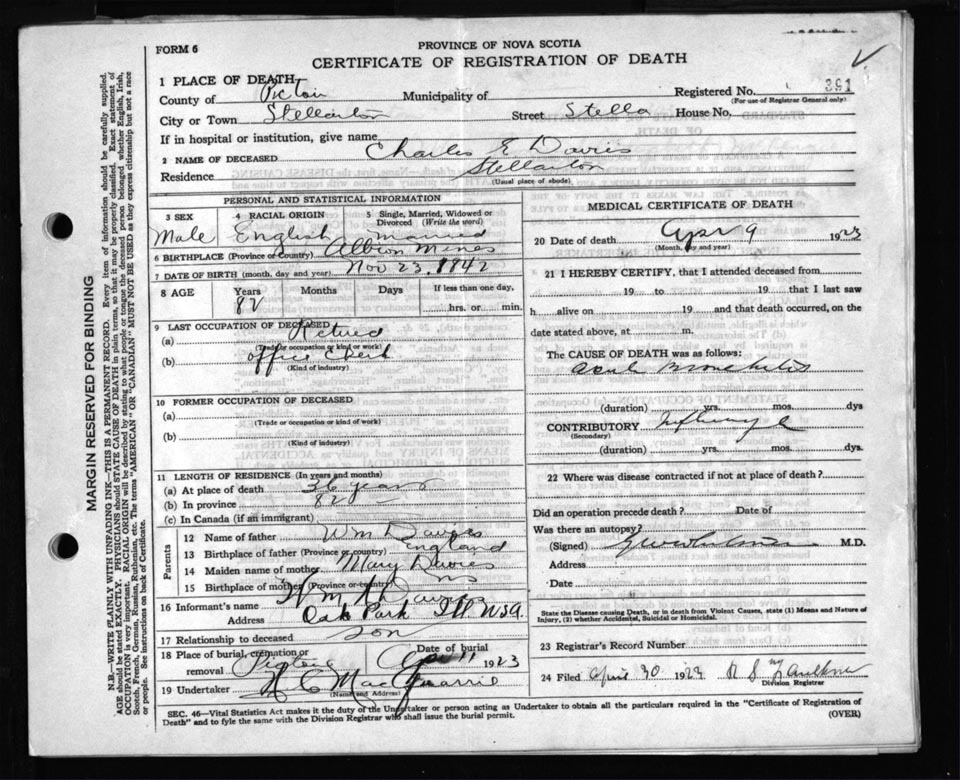 FORM 6
PROVINCE OF NOVA SCOTIA
CERTIFICATE OF REGISTRATION OF DEATH
1 PLACE OF DEATH
County of Pictou Municipality of Registered No. 391
(For use of Registrar General only)
City or Town Stellarton Street Stella House No.
If in hospital or institution, give name
2 NAME OF DECEASED Charles E Davies
Residence Stellarton
(Usual place of abode)
PERSONAL AND STATISTICAL INFORMATION
3 SEX 4 RACIAL ORIGIN 5 Single, Married, Widowed or Divorced (Write the word)
Male English Married
6 BIRTHPLACE (Province or Country) Albion Mines
7 DATE OF BIRTH (month, day and year) Nov 23, 1842
8 AGE Years Months Days If less than one day,
82 hrs. or min.
9 LAST OCCUPATION OF DECEASED
(a) Retired
(Trade or occupation or kind of work)
(b) office Clerk
(Kind of industry)
10 FORMER OCCUPATION OF DECEASED
(a)
(Trade or occupation or kind of work)
(b)
(Kind of industry)
11 LENGTH OF RESIDENCE (In years and months)
(a) At place of death 36 years
(b) In province 82
(c) In Canada (if an immigrant)
Parents
12 Name of father Wm Davies
13 Birthplace of father (Province or country) England
14 Maiden name of mother Mary Davies
15 Birthplace of mother (Province or country) NS
16 Informant's name
Address Oak Park Ill USA.
17 Relationship to deceased Son
18 Place of burial, cremation or removal Pictou Date of burial Apr 11 1923
19 Undertaker
(Name and Address)
MEDICAL CERTIFICATE OF DEATH
20 Date of death Apr 9 1923
(Month, day and year)
21 I HEREBY CERTIFY, that I attended deceased from
19 to 19 that I last saw
h alive on 19 and that death occurred, on the
date stated above, at m.
The CAUSE OF DEATH was as follows:
Bronchitis
(duration) yrs. mos. dys
CONTRIBUTORY Influenza
(Secondary)
(duration) yrs. mos. dys
22 Where was disease contracted if not at place of death?
Did an operation precede death? Date of
Was there an autopsy?
(Signed) M.D.
Address
Date
State the Disease causing Death, or in death from Violent Causes, state (1) Means and Nature of
Injury, (2) whether Accidental, Suicidal or Homicidal.
23 Registrar's Record Number
24 Filed April 30 1923
Division Registrar
SEC. 46—Vital Statistics Act makes it the duty of the Undertaker or person acting as Undertaker to obtain all the particulars required in the "Certificate of Registration of
Death" and to fyle the same with the Division Registrar who shall issue the burial permit. (OVER)
MARGIN RESERVED FOR BINDING
N.B.—WRITE PLAINLY WITH UNFADING INK—THIS IS A PERMANENT RECORD. Every item of information should be carefully supplied.
AGE should be stated EXACTLY. PHYSICIANS should STATE CAUSE OF DEATH in plain terms, so that it may be properly classified. Exact statement of
OCCUPATION is very important. RACIAL ORIGIN will be described by stating to what people or tongue the deceased person belonged whether English, Irish,
Scotch, French, German, Russian, Ruthenian, etc. The terms "AMERICAN" or "CANADIAN" MUST NOT BE USED as they express citizenship but not a race
or people. See instructions on back of Certificate.